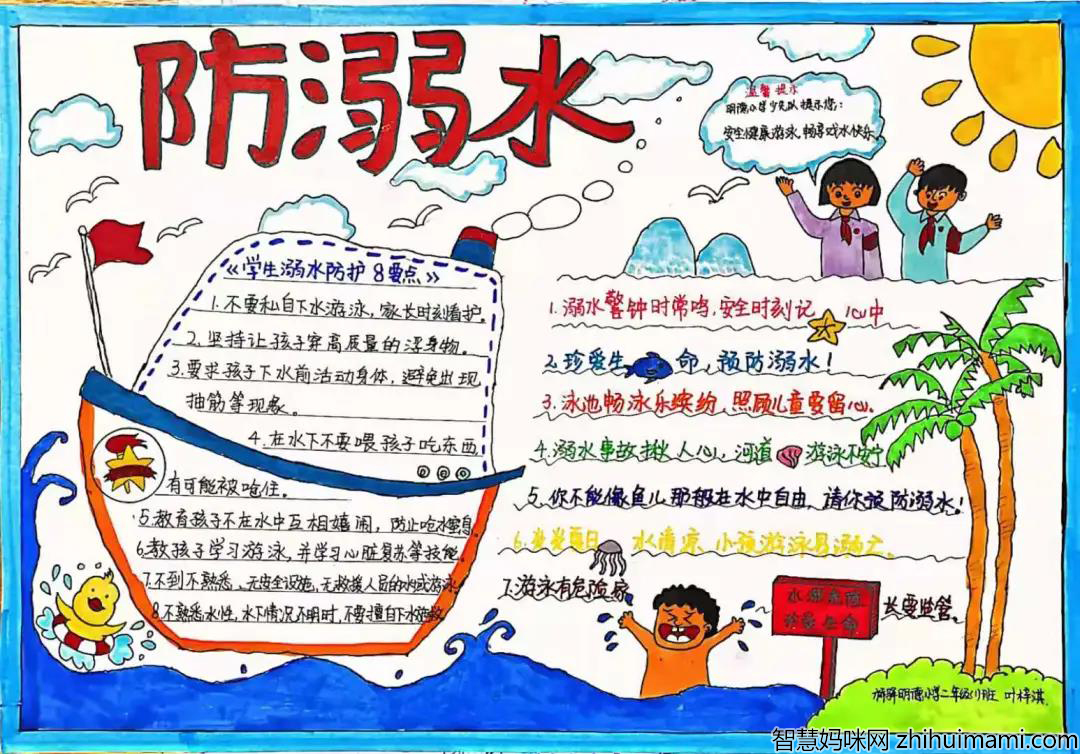 防溺水
温馨提示
明德小学少先队提示您:
安全健康游泳,畅享戏水快乐。
《学生溺水防护8要点》
1.不要私自下水游泳,家长时刻看护。
2.坚持让孩子穿高质量的浮身物。
3.要求孩子下水前活动身体,避免出现
抽筋等现象。
4.在水下不要喂孩子吃东西
有可能被呛住。
5.教育孩子不在水中互相嬉闹,防止呛水窒息。
6.教孩子学习游泳,并学习心脏复苏等技能。
7.不到不熟悉、无安全设施、无救援人员的水域游泳
8.不熟悉水性,水下情况不明时,不要擅自下水施救
1.溺水警钟时常鸣,安全时刻记心中
2.珍爱生命,预防溺水!
3.泳池畅泳乐缤纷,照顾儿童要留心。
4.溺水事故揪人心,河道游泳不安宁
5.你不能像鱼儿那般在水中自由,请你预防溺水!
6.炎炎夏日水清凉,小孩游泳易溺亡。
7.游泳有危险家长要监管。
水深危险
珍爱生命
明德小学二年级(1)班 叶梓淇
智慧妈咪网 zhihuimami.com